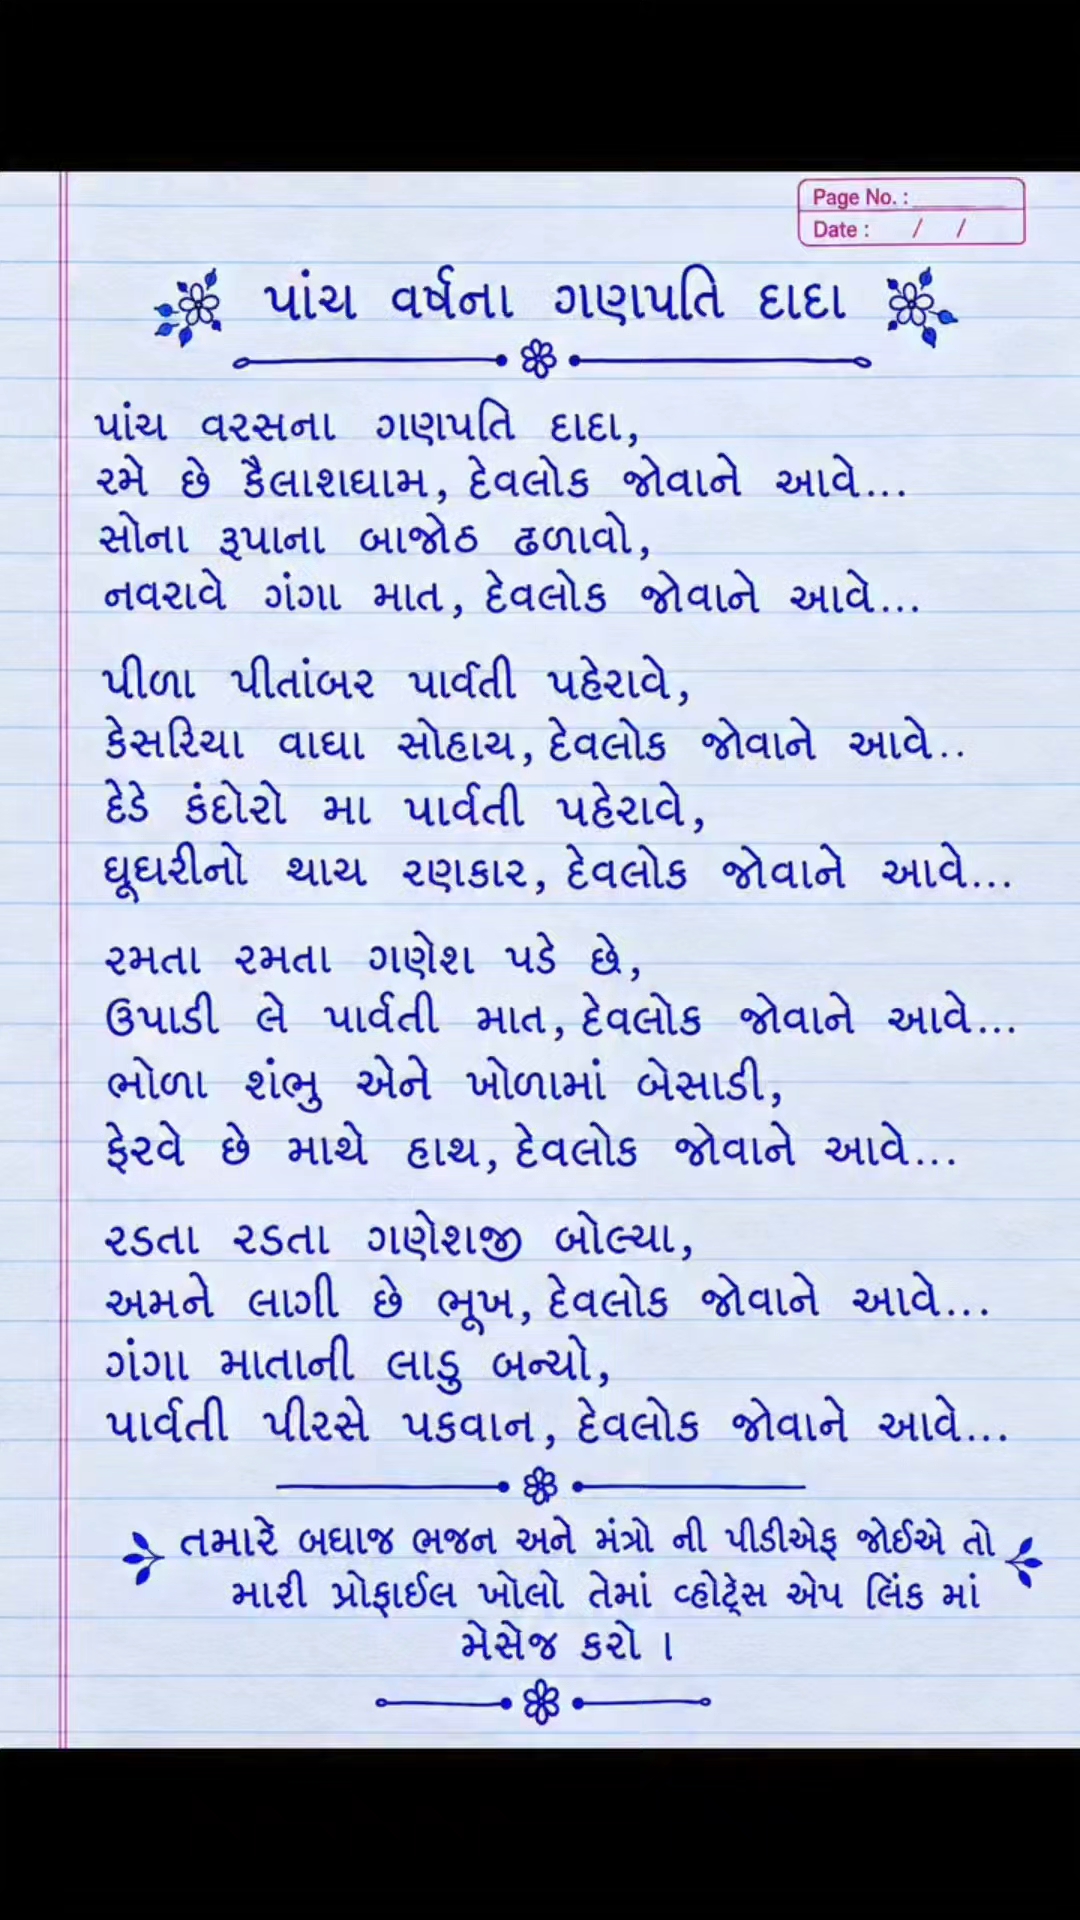 Page No. :
Date : / /
પાંચ વર્ષના ગણપતિ દાદા
પાંચ વરસના ગણપતિ દાદા,
રમે છે કૈલાશધામ, દેવલોક જોવાને આવે...
સોના રૂપાના બાજોઠ ઢળાવો,
નવરાવે ગંગા માત, દેવલોક જોવાને આવે...
પીળા પીતાંબર પાર્વતી પહેરાવે,
કેસરિયા વાઘા સોહાય, દેવલોક જોવાને આવે..
દેડે કંદોરો મા પાર્વતી પહેરાવે,
ઘૂઘરીનો થાય રણકાર, દેવલોક જોવાને આવે...
રમતા રમતા ગણેશ પડે છે,
ઉપાડી લે પાર્વતી માત, દેવલોક જોવાને આવે...
ભોળા શંભુ એને ખોળામાં બેસાડી,
ફેરવે છે માથે હાથ, દેવલોક જોવાને આવે...
રડતા રડતા ગણેશજી બોલ્યા,
અમને લાગી છે ભૂખ, દેવલોક જોવાને આવે...
ગંગા માતાની લાડુ બન્યો,
પાર્વતી પીરસે પકવાન, દેવલોક જોવાને આવે...
તમારે બધાજ ભજન અને મંત્રો ની પીડીએફ જોઈએ તો
મારી પ્રોફાઈલ ખોલો તેમાં વ્હોટ્રેસ એપ લિંક માં
મેસેજ કરો ।